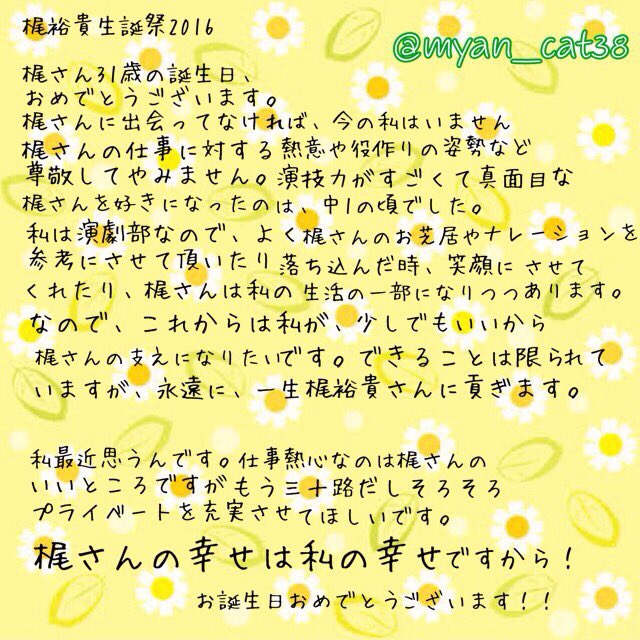 梶裕貴生誕祭2016
@myan_cat38
梶さん31歳の誕生日、
おめでとうございます。
梶さんに出会ってなければ、今の私はいません
梶さんの仕事に対する熱意や役作りの姿勢など
尊敬してやみません。演技力がすごくて真面目な
梶さんを好きになったのは、中1の頃でした。
私は演劇部なので、よく梶さんのお芝居やナレーションを
参考にさせて頂いたり落ち込んだ時、笑顔にさせて
くれたり、梶さんは私の生活の一部になりつつあります。
なので、これからは私が、少しでもいいから
梶さんの支えになりたいです。できることは限られて
いますが、永遠に、一生梶裕貴さんに貢ぎます。
私最近思うんです。仕事熱心なのは梶さんの
いいところですがもう三十路だしそろそろ
プライベートを充実させてほしいです。
梶さんの幸せは私の幸せですから!
お誕生日おめでとうございます!!